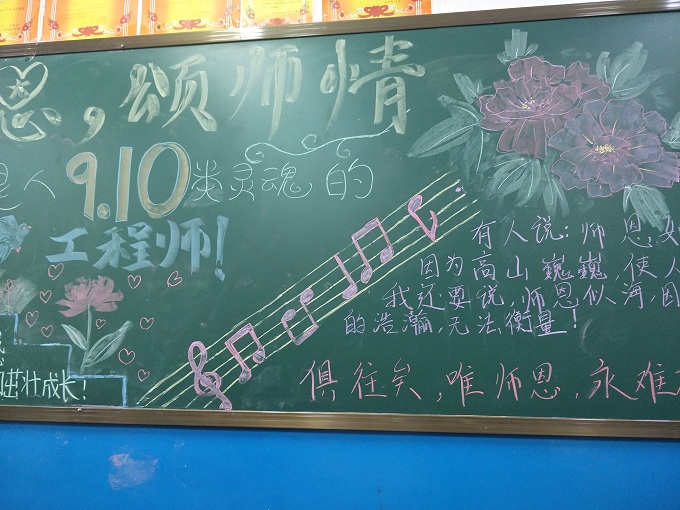 恩，颂师情
是人9.10类灵魂的
工程师！
有人说：师恩如
因为高山巍巍，使人
我还要说，师恩似海，因
的浩瀚，无法衡量！
俱往矣，唯师恩，永难
茁壮成长！